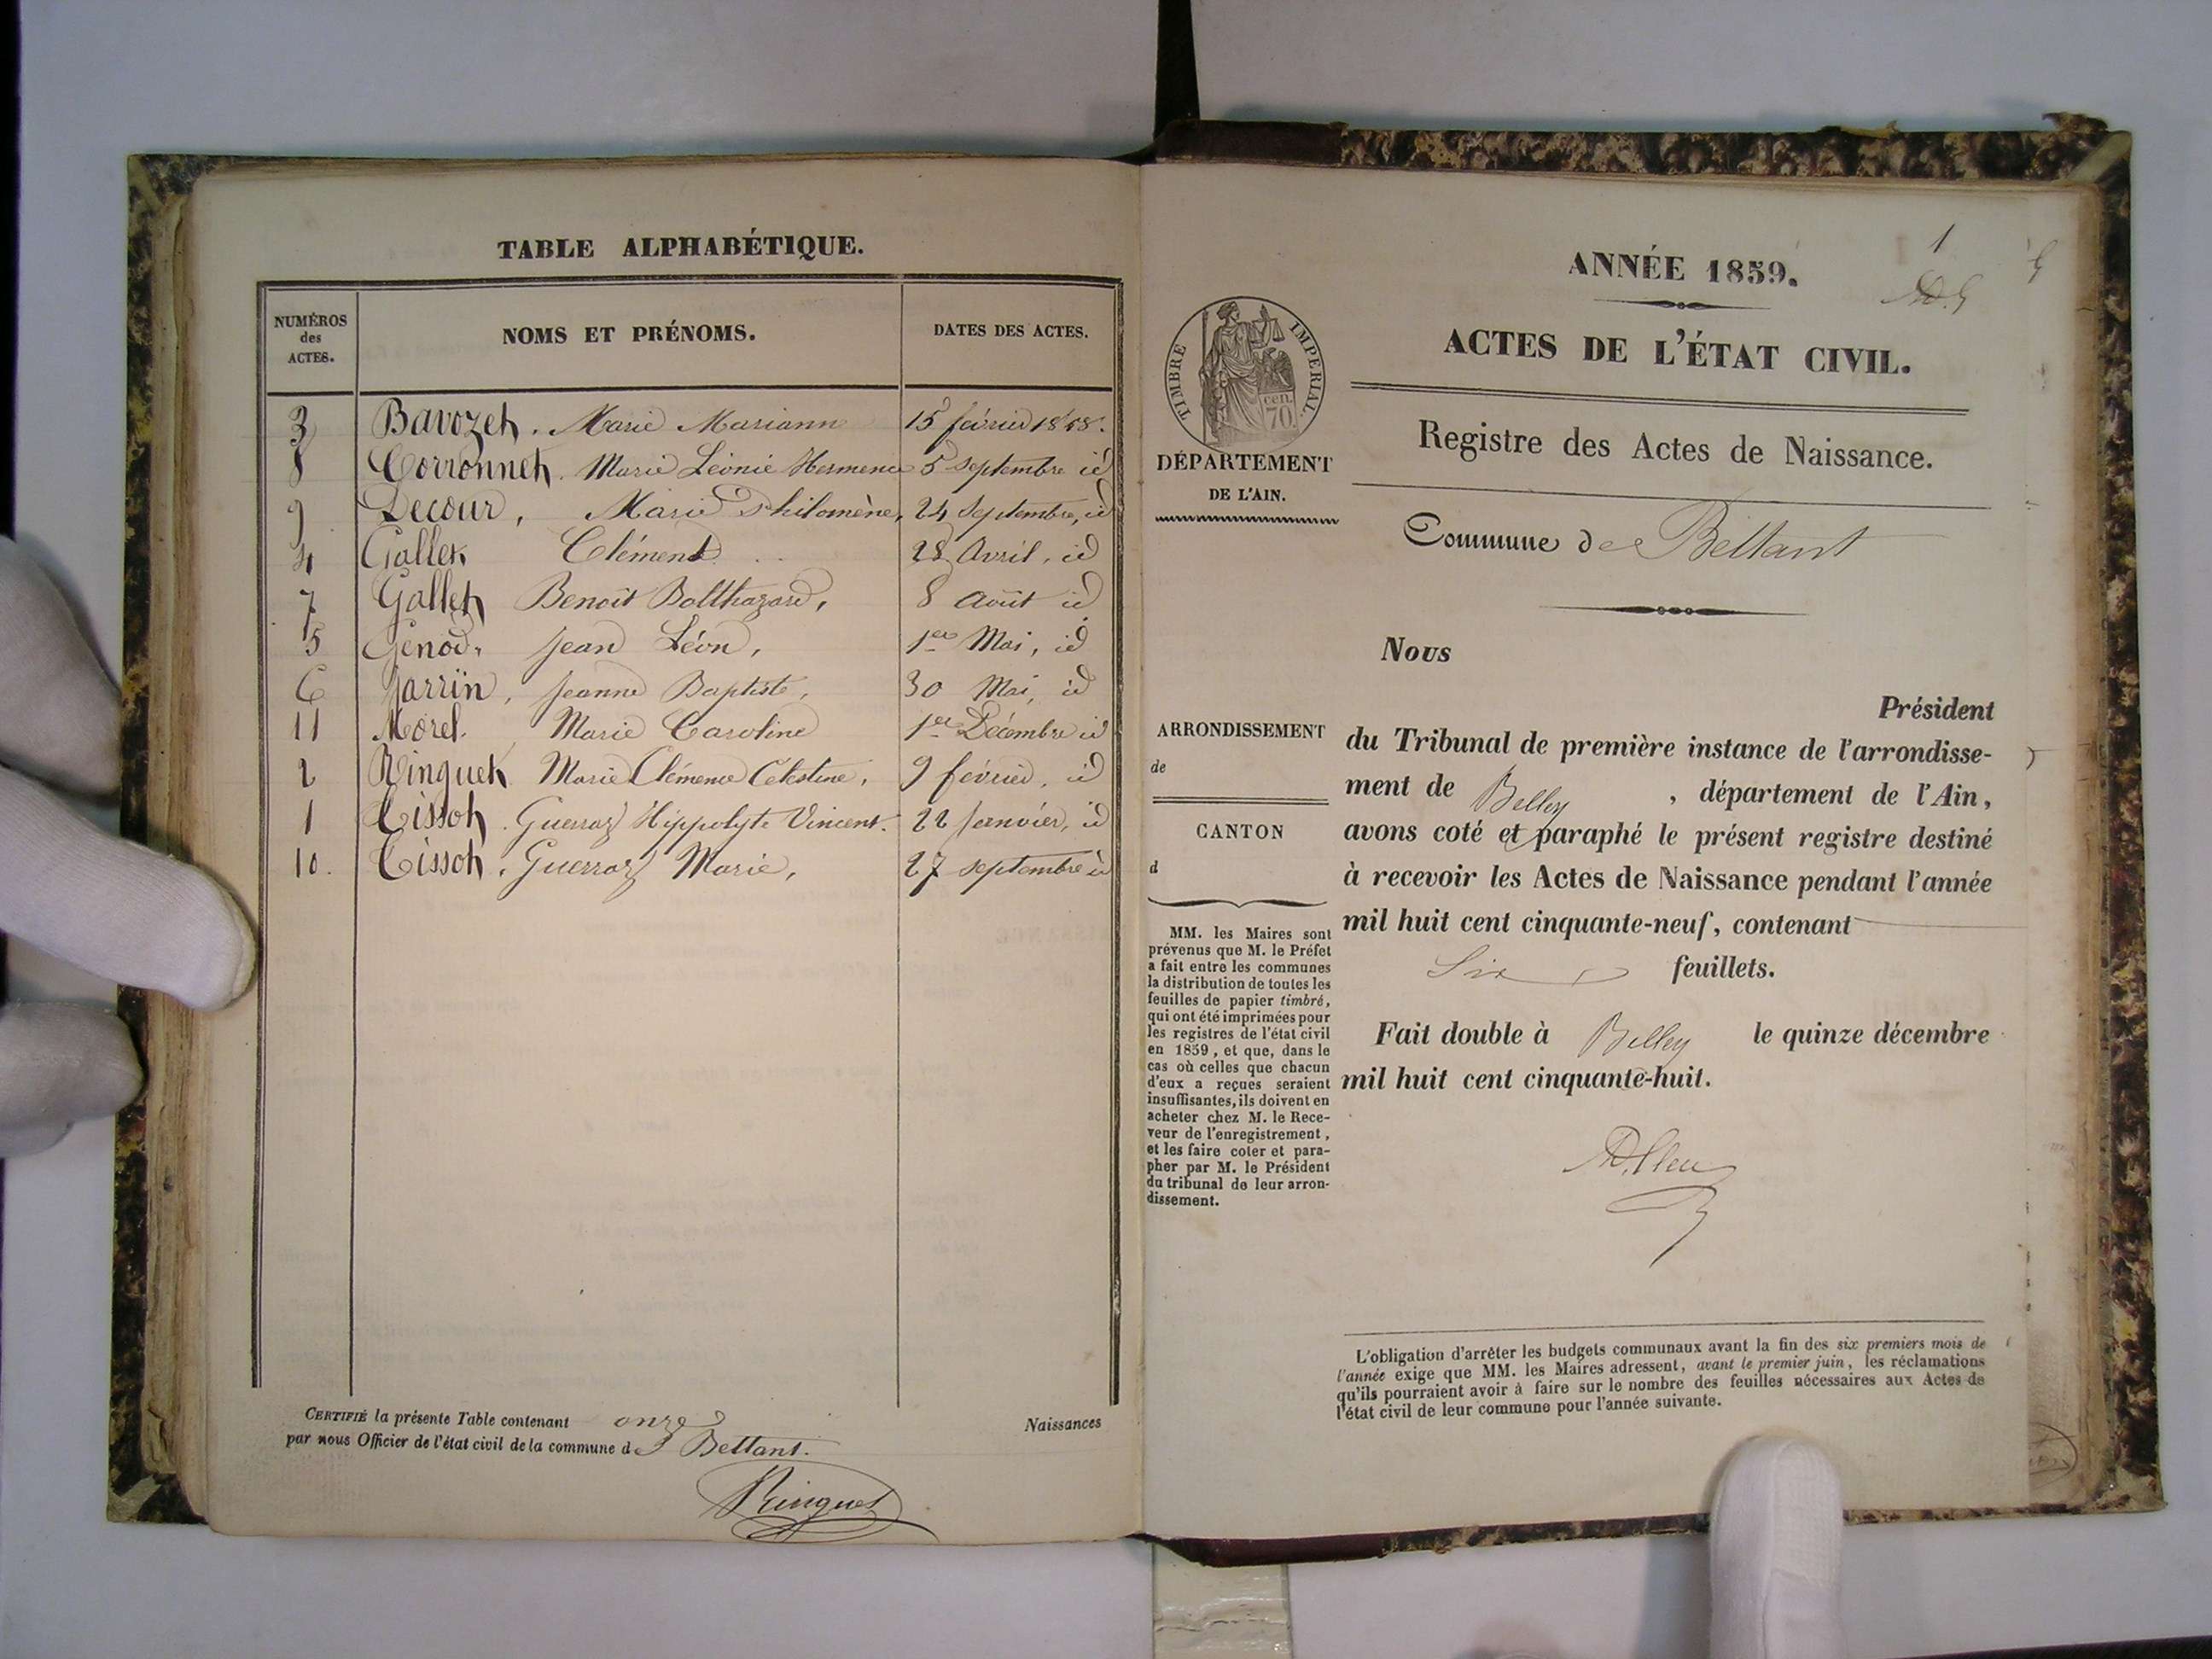 TABLE ALPHABÉTIQUE.
NUMÉROS des ACTES.
NOMS ET PRÉNOMS.
DATES DES ACTES.
3 Bavozet. Marie Mariann 15 février 1858.
8 Corronnet. Marie Léonie Hermence 5 septembre id
9 Decour, Marie Philomène, 24 septembre, id
4 Gallet Clément 28 Avril, id
7 Gallet Benoît Balthazard, 8 Août id
5 Genod, Jean Léon, 1er Mai, id
6 Jarrin, Jeanne Baptiste, 30 Mai, id
11 Morel. Marie Caroline 1er Décembre id
2 Ringuet Marie Clémence Célestine, 9 février, id
1 Tissot. Guerraz Hippolyte Vincent. 22 Janvier, id
10. Tissot, Guerraz Marie, 27 septembre id
CERTIFIÉ la présente Table contenant onze Naissances
par nous Officier de l'état civil de la commune de Bettant.
Ringuet
1
ANNÉE 1859.
ACTES DE L'ÉTAT CIVIL.
Registre des Actes de Naissance.
Commune de Bettant
TIMBRE IMPERIAL.
cen. 70.
DÉPARTEMENT
DE L'AIN.
ARRONDISSEMENT
de
CANTON
d
MM. les Maires sont
prévenus que M. le Préfet
a fait entre les communes
la distribution de toutes les
feuilles de papier timbré,
qui ont été imprimées pour
les registres de l'état civil
en 1859, et que, dans le
cas où celles que chacun
d'eux a reçues seraient
insuffisantes, ils doivent en
acheter chez M. le Rece-
veur de l'enregistrement,
et les faire coter et para-
pher par M. le Président
du tribunal de leur arron-
dissement.
Nous
Président
du Tribunal de première instance de l'arrondisse-
ment de Belley, département de l'Ain,
avons coté et paraphé le présent registre destiné
à recevoir les Actes de Naissance pendant l'année
mil huit cent cinquante-neuf, contenant
Six feuillets.
Fait double à Belley le quinze décembre
mil huit cent cinquante-huit.
L'obligation d'arrêter les budgets communaux avant la fin des six premiers mois de
l'année exige que MM. les Maires adressent, avant le premier juin, les réclamations
qu'ils pourraient avoir à faire sur le nombre des feuilles nécessaires aux Actes de
l'état civil de leur commune pour l'année suivante.